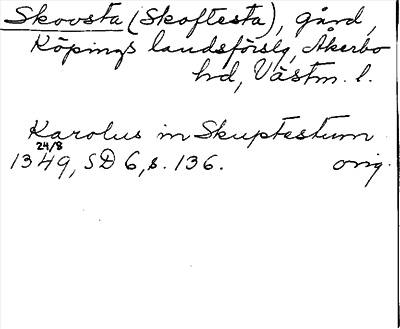 Skovsta (Skoftesta), gård,
Köpings landsförslg, Åkerbo
hd, Västm. l.
Karolus in Skuptestum
24/8
1349, SD 6, s. 136. orig.